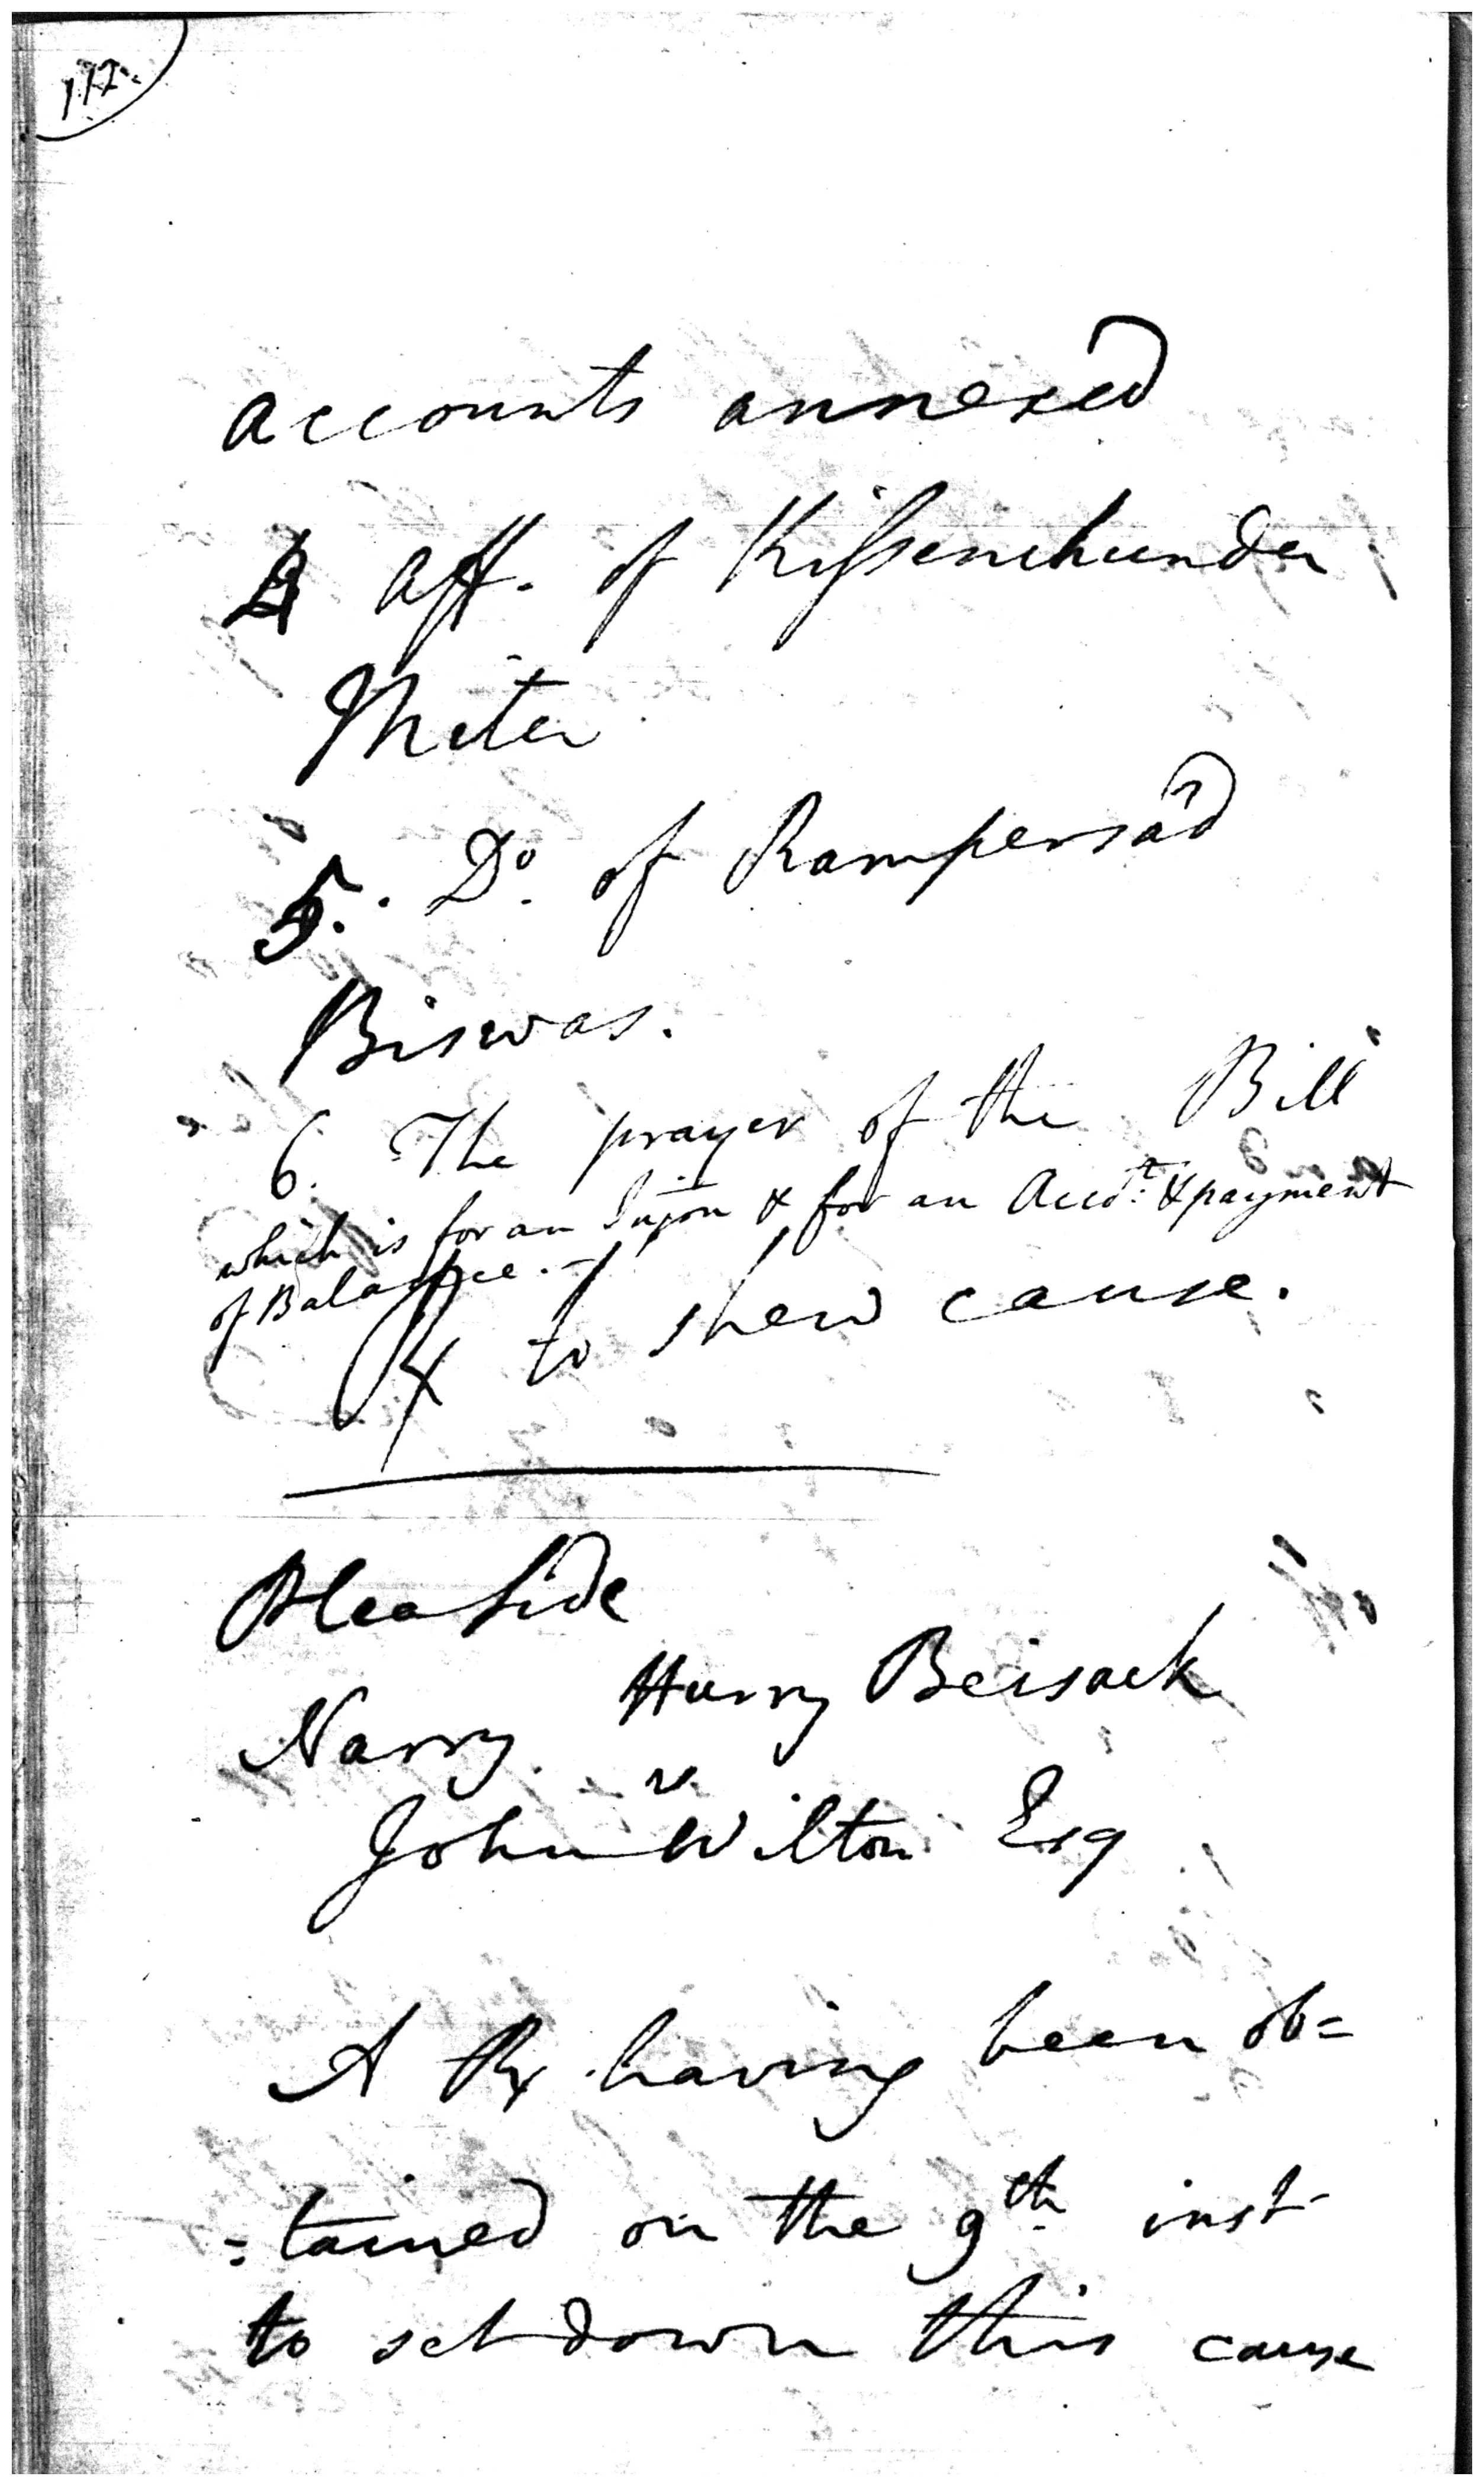 117.
accounts annexed
4 Aff. of Kissenchunder
Miter
5. Do. of Rampersad
Biswas.
6. The prayer of the Bill
which is for an Injon & for an Acct. & payment
of Balance. –
Rx to shew cause.
Plea Side
Narry Hurry Beisack
v.
John Wilton Esq
A Rx having been ob=
=tained on the 9th inst
to set down this cause